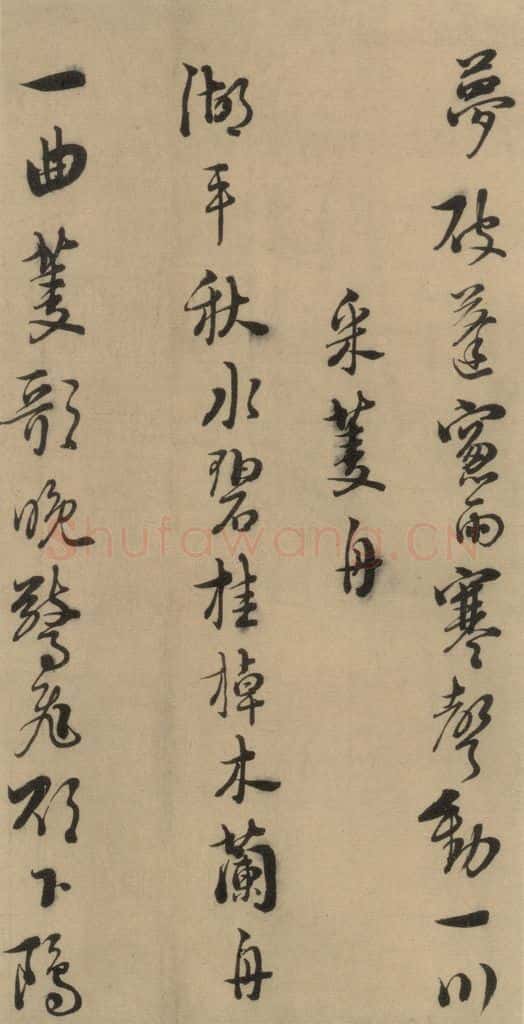 夢破蓬窻雨寒聲動一川
采菱舟
湖平秋水碧桂棹木蘭舟
一曲菱歌晚驚飛欲下鷗
Shufawang.CN